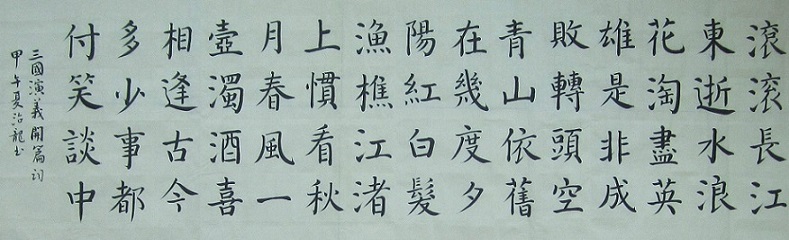 滾滾長江
東逝水浪
花淘盡英
雄是非成
敗轉頭空
青山依舊
在幾度夕
陽紅白髮
漁樵江渚
上慣看秋
月春風一
壺濁酒喜
相逢古今
多少事都
付笑談中
三國演義開篇詞
甲午夏治龍书